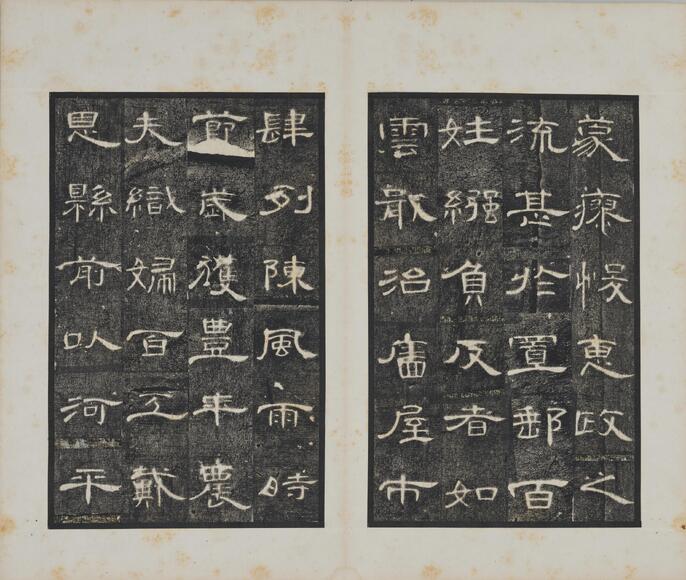 蒙瘳悛惠政之
流甚於置郵百
姓繦負反者如
雲戢治廧屋市
肆列陳風雨時
節歲獲豐年農
夫織婦百工戴
恩縣前以河平